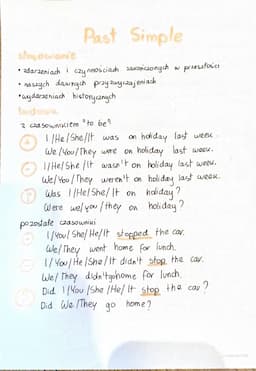 Past Simple
Stosowanie
• zdarzeniach i czynnościach zakończonych w przeszłości
• naszych dawnych przyzwyczajeniach
• wydarzeniach historycznych
Budowa
z czasownikiem "to be"
+ I/He/She/It was on holiday last week.
We/You/They were on holiday last week.
- I/He/She/It wasn't on holiday last week.
We/You/They weren't on holiday last week.
? Was I/He/She/It on holiday?
Were we/you/they on holiday?
pozostałe czasowniki
+ I/You/She/He/It stopped the car.
We/They went home for lunch.
- I/You/He/She/It didn't stop the car.
We/They didn't go home for lunch.
? Did I/You/She/He/It stop the car?
Did We/They go home?